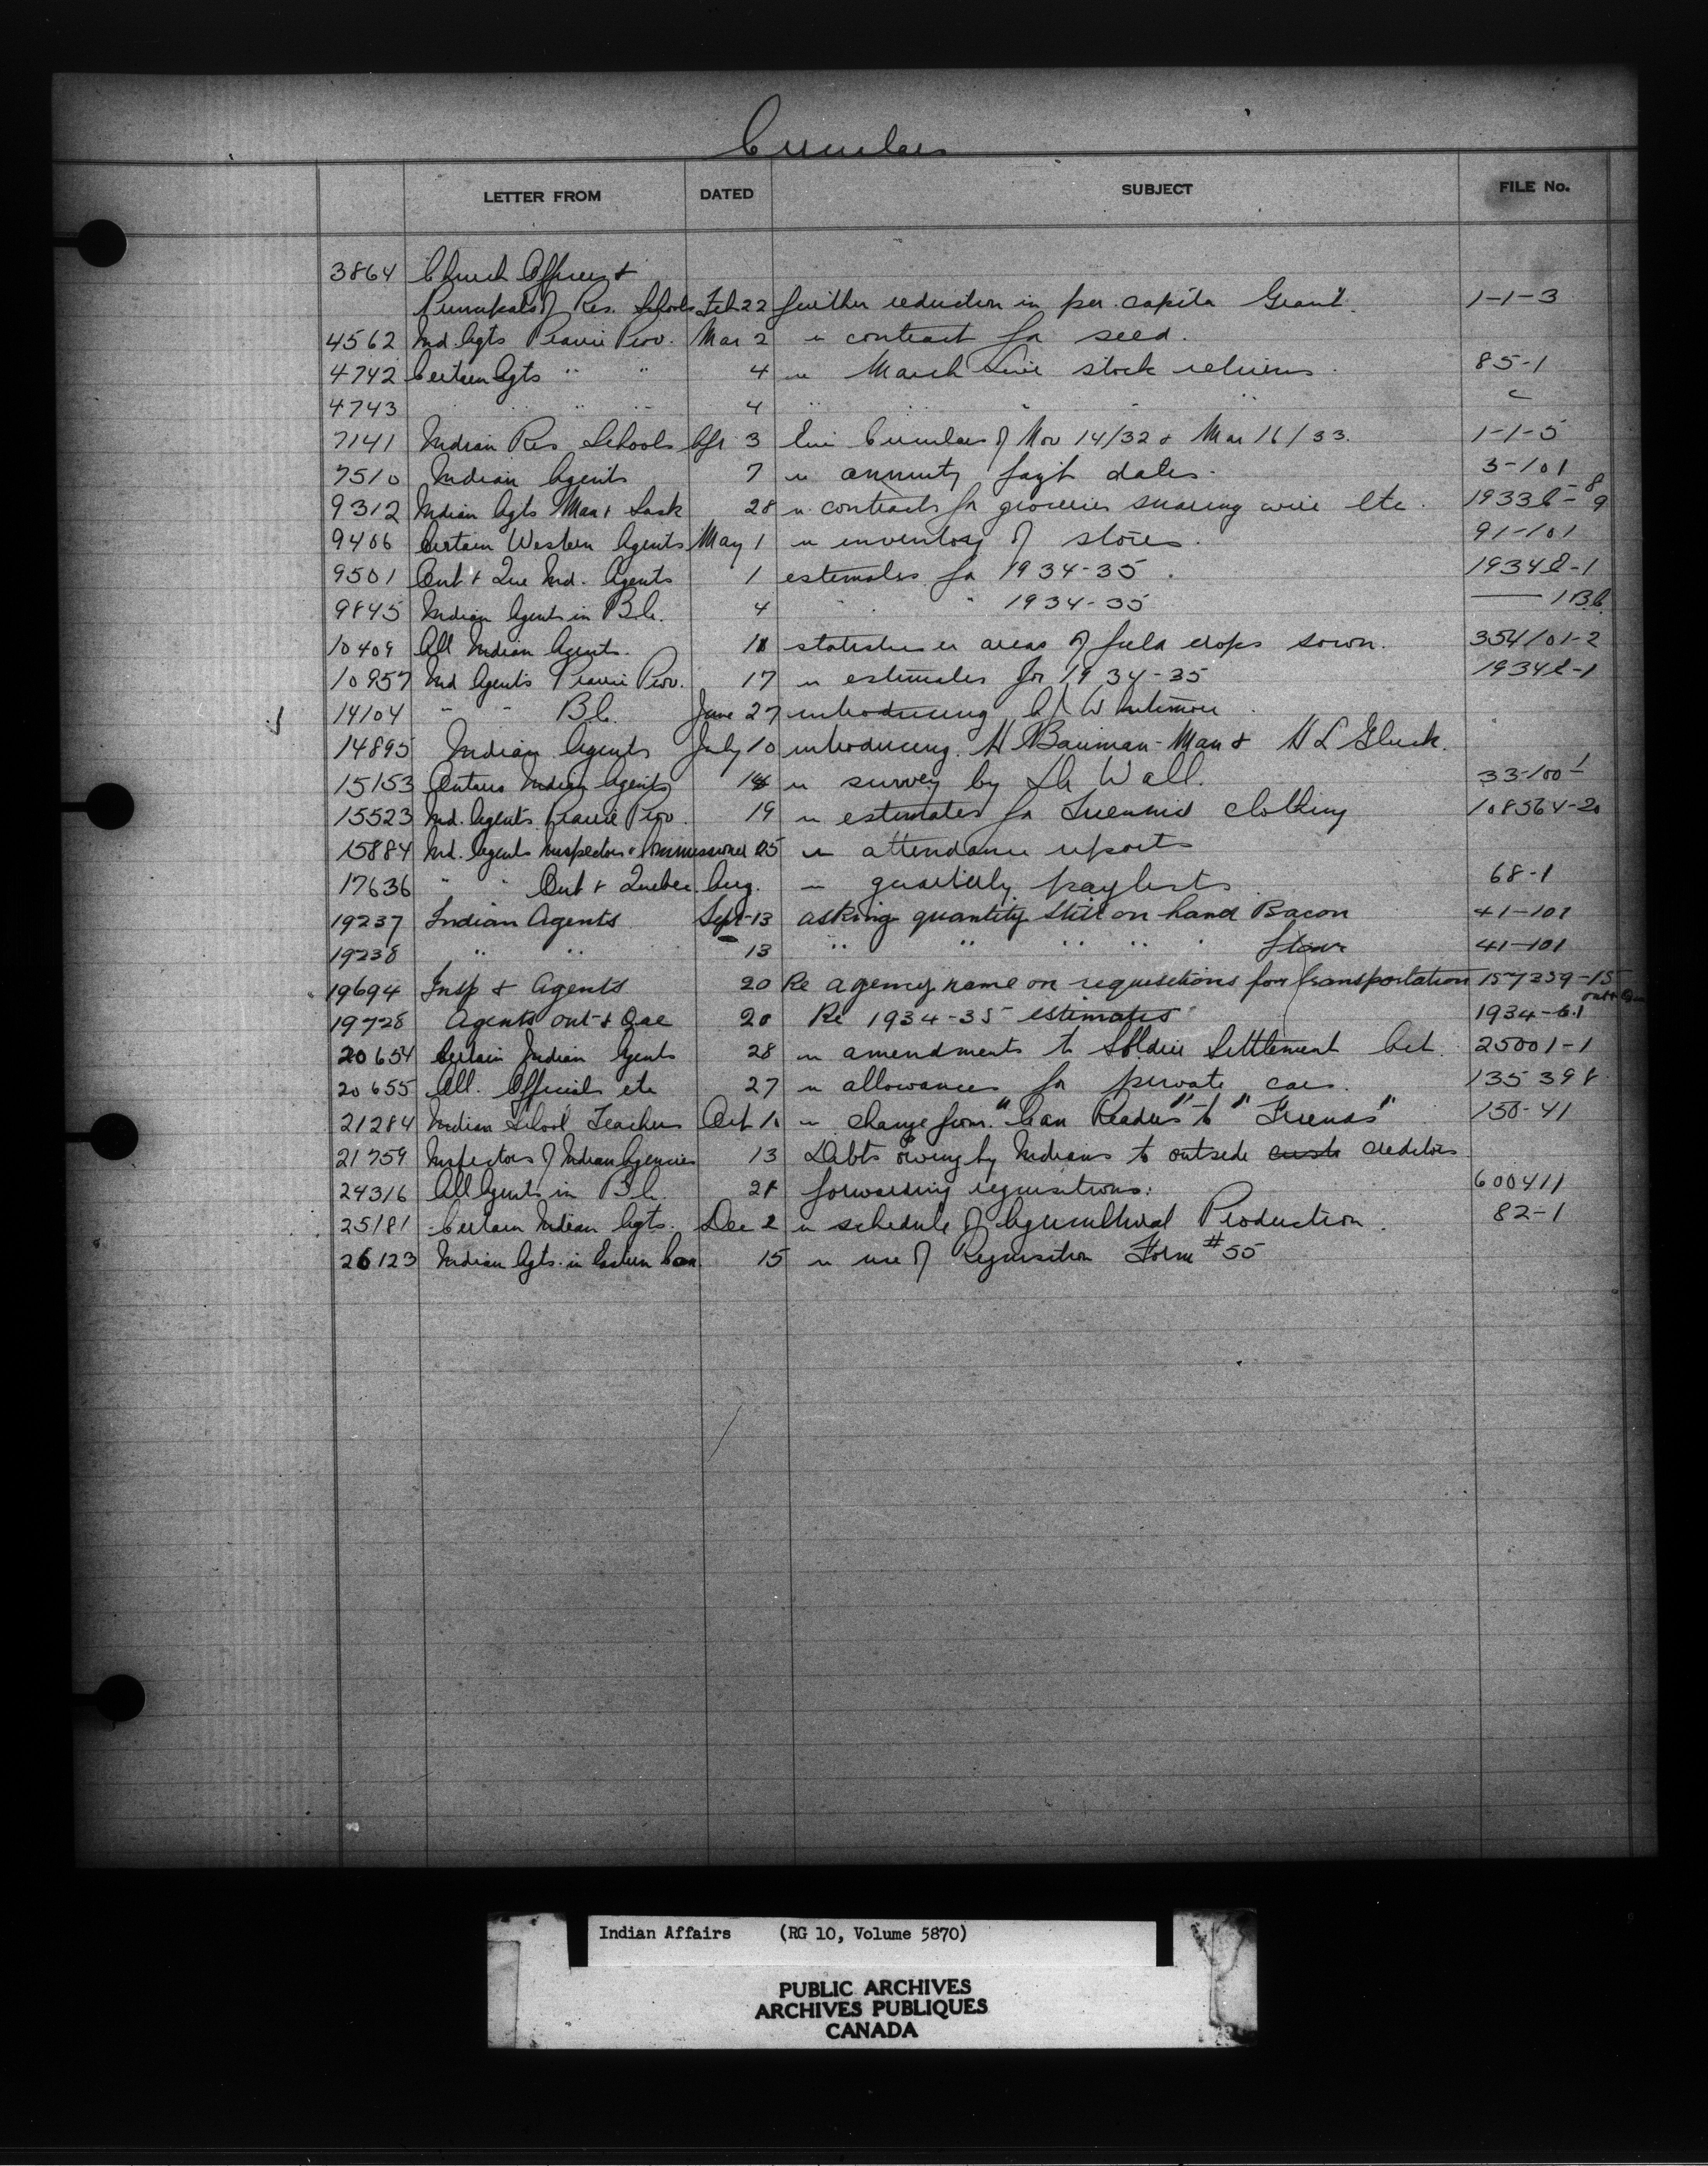 Circulars
LETTER FROM DATED SUBJECT FILE No.
3864 Church Officers &
Principals of Res. Schools Feb 22 further reduction in per capita Grant. 1-1-3
4562 Ind. Agts Prairie Prov. Mar 2 re contract for seed.
4742 Certain Agts " " 4 re March Live stock returns. 85-1
4743 " " 4 " " " "
7141 Indian Res Schools Apr 3 Circulars of Nov 14/32 & Mar 16/33. 1-1-5
7510 Indian Agents 7 re annuity pay't dates. 3-101
9312 Indian Agts Man & Sask 28 re contracts for groceries snaring wire etc. 1933 - 8 9
9406 Certain Western Agents May 1 re inventory of stores. 91-101
9501 Ont & Que Ind. Agents 1 estimates for 1934-35. 1934E-1
9845 Indian Agents in B.C. 4 " " 1934-35 —— 1 B.C.
10409 All Indian Agents. 11 statistics re areas of field crops sown. 354101-2
10957 Ind Agents Prairie Prov. 17 re estimates for 1934-35 1934E-1
14104 " " B.C. June 27 introducing
14895 Indian Agents July 10 introducing H Bauman - Man & H L Gluck.
15153 Ontario Indian Agents 14 re survey by Dr Wall. 33-100-1
15523 Ind. Agents Prairie Prov. 19 re estimates for Triennial clothing 108564-20
15884 Ind. Agents Inspectors & Commissioner 25 re attendance reports
17636 " " Ont & Quebec. Aug. re quarterly paylists 68-1
19237 Indian Agents Sept-13 asking quantity still on hand Bacon 41-101
19238 " " 13 " " " " " Flour 41-101
19694 Insp & Agents 20 Re agency name on requisitions for transportation 157259-15
19728 Agents Ont & Que 20 Re 1934-35 estimates 1934-6.1 Ont & Que
20654 Certain Indian Agents 28 re amendments to Soldier Settlement Act. 25001-1
20655 All. Officials etc 27 re allowances for private cars. 135398
21284 Indian School Teachers Oct re change from "Can Readers" to "Treenas" 150-41
21759 Inspectors of Indian Agencies 13 Debts owing by Indians to outside creditors
24316 All Agents in B.C. 21 forwarding requisitions. 600411
25181 Certain Indian Agts. Dec 2 re schedule of Agricultural Production. 82-1
26123 Indian Agts. in Eastern Can. 15 re use of Requisition Form #55
Indian Affairs (RG 10, Volume 5870)
PUBLIC ARCHIVES
ARCHIVES PUBLIQUES
CANADA